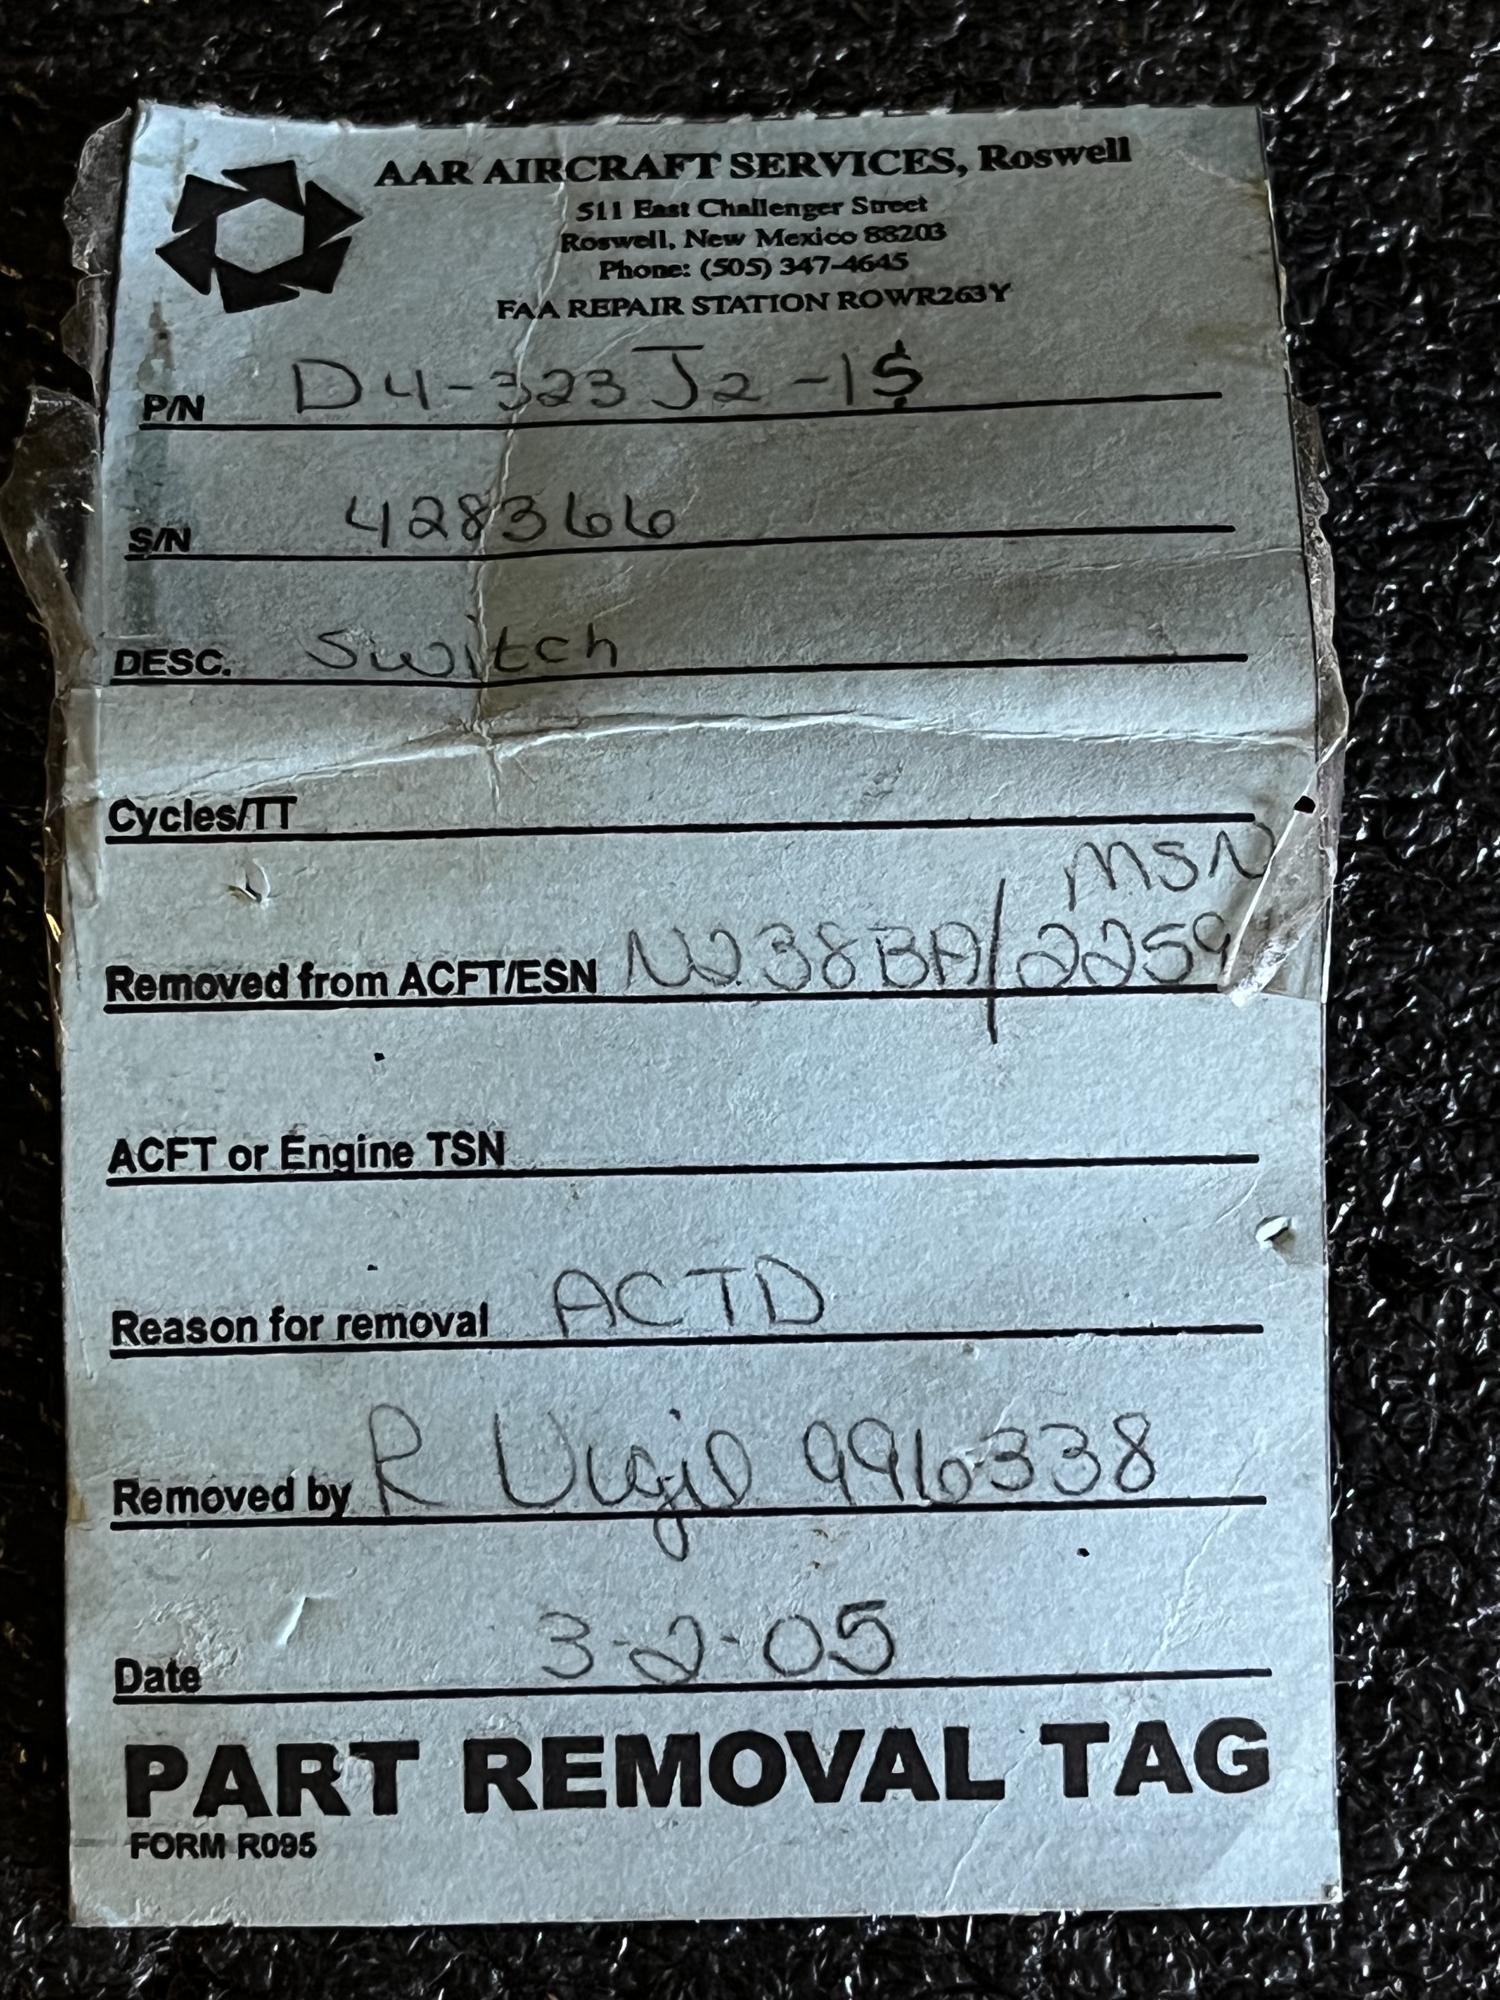 AAR AIRCRAFT SERVICES, Roswell
511 East Challenger Street
Roswell, New Mexico 88203
Phone: (505) 347-4645
FAA REPAIR STATION ROWR263Y
P/N D4-323J2-1$
S/N 428366
DESC. Switch
Cycles/TT
MSN
Removed from ACFT/ESN N238BA/2259
ACFT or Engine TSN
Reason for removal ACTD
Removed by R Vigil 996338
Date 3-2-05
PART REMOVAL TAG
FORM R095